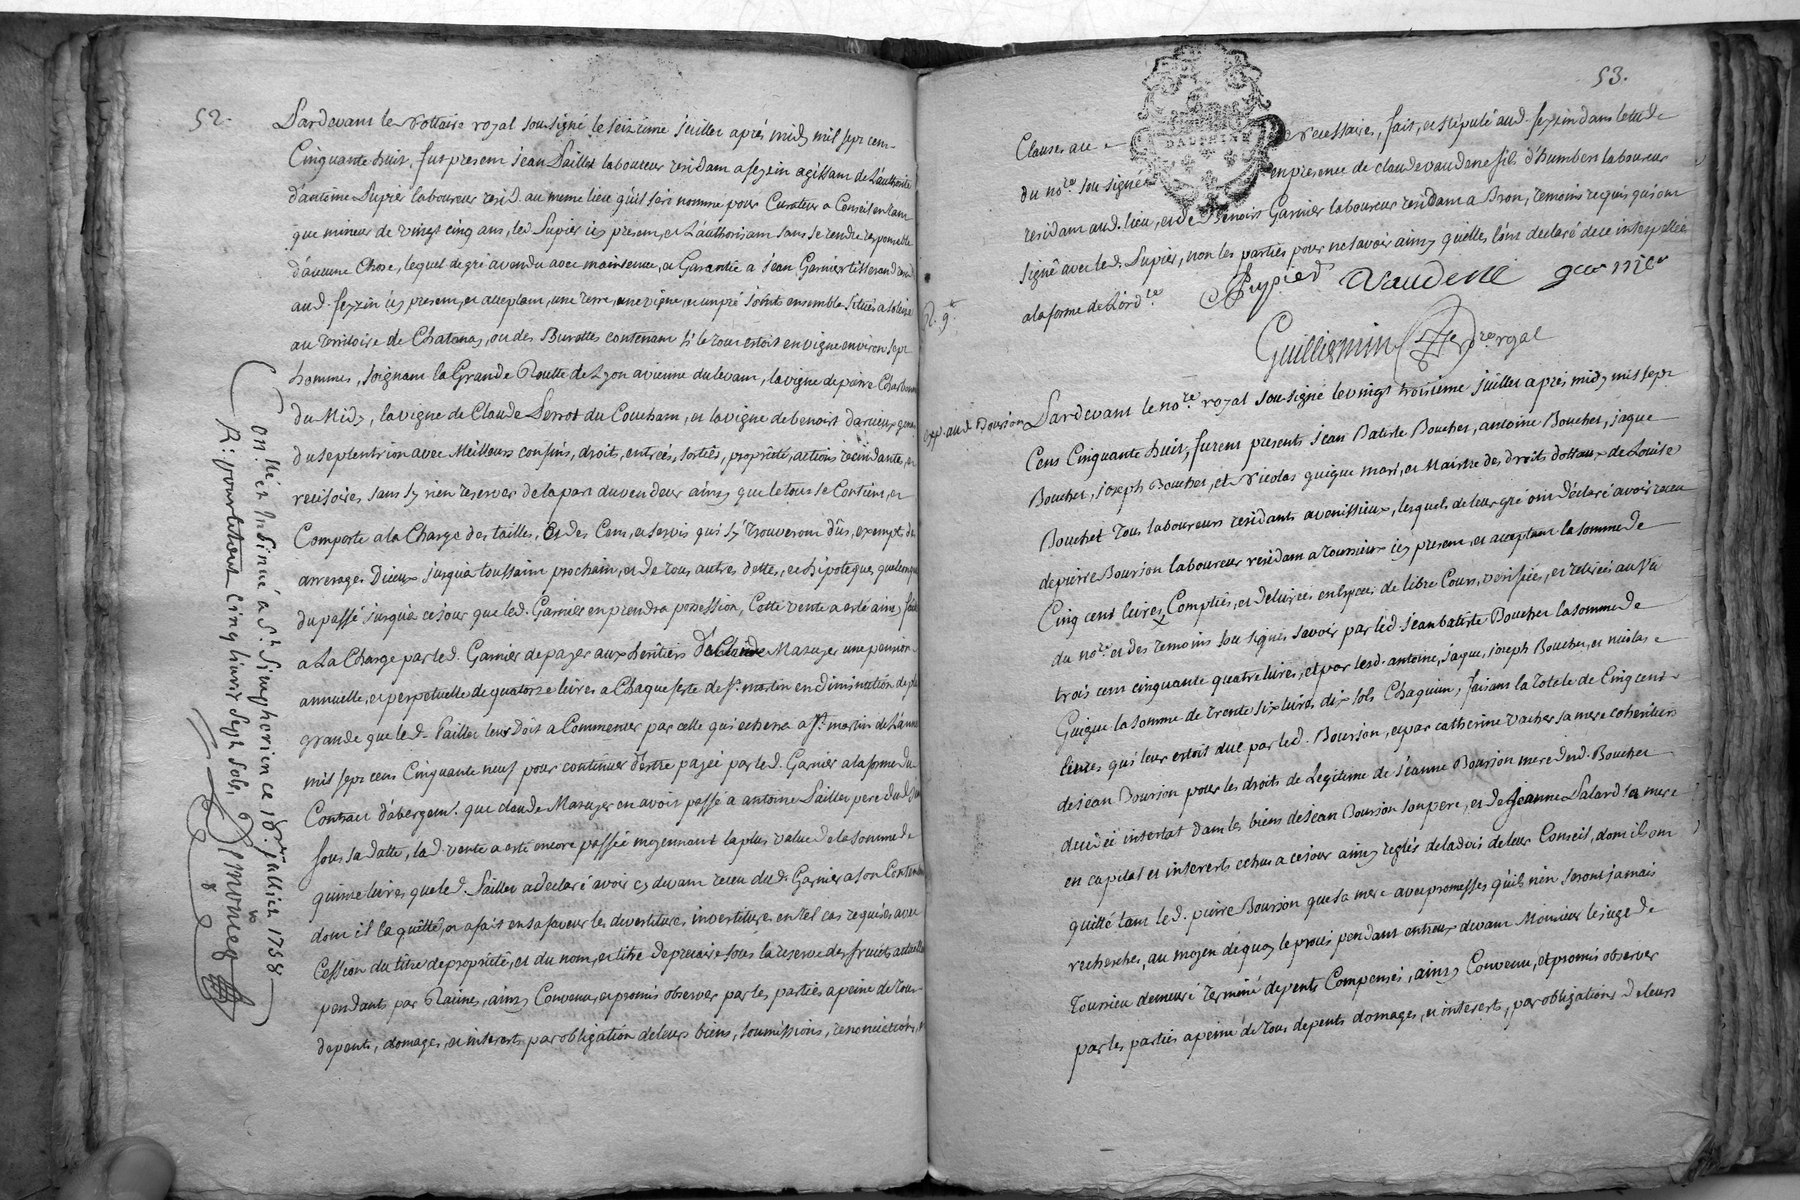 52.
Pardevant le Nottaire royal sousigné le seizieme juillet après midy mil sept cent
Cinquante huit, fut present jean Paillet laboureur residant a feyzin agissant de L'authorité
d'antoine Pupier laboureur resid. au meme lieu qu'il s'est nommé pour Curateur a Conseil entant
que mineur de vingt cinq ans, led. Pupier icy present, et L'authorisant sans se rendre responsable
d'aucune Chose, lequel de gré a vendu avec maintenue, et Garantie a jean Garnier tisserand resid
aud. feyzin icy present, et acceptant, une terre, une vigne, et un pré joints ensemble situés a solaize
au territoire de Chatanay, ou des Burettes contenant si le tout estoit en vigne environ sept
hommes, joignant la Grande Routte de Lyon a vienne du levant, la vigne de pierre Charbon
du Midy, la vigne de Claude Perrot du Couchant, et la vigne de benoist darcieux
du septentrion avec Meilleurs confins, droits, entrées, sorties, proprietés, actions recindantes, et
recisoires, sans s'y rien reserver de la part du vendeur ainsy que le tout se Contient, et
Comporte a la Charge des tailles, et des Cens, et servis qui s'y trouveront dûs, exempt des
arrerages Dieux jusqu'a toussaint prochain, et de tous autres dettes, et hipoteques quelconques
du passé jusqu'a ce jour que led. Garnier en prendra possession, Cette vente a esté ainsy faite
a La Charge par led. Garnier de payer aux heritiers de Claude Mazuyer une pension
annuelle, et perpetuelle de quatorze livres a Chaque feste de st. martin en diminution de plus
grande que led. Paillet leur doit a Commencer par celle qui echerra a st. martin de L'année
mil sept cens Cinquante neuf pour continuer d'estre payée par led. Garnier a la forme du
Contract d'abergemt. que claude Mazuyer en avoit passé a antoine Paillet pere dud. jean
sous sa datte, lad. vente a esté encore passée moyennant la plus value de la somme de
quinze livres que led. Paillet a declaré avoir cy devant receu dud. Garnier a son Contentemt
dont il le quitte, et a fait en sa faveur les devestitures, investitures en tel cas requises avec
Cession du titre de proprieté, et du nom, et titre de precaire sous la reserve des fruits actuellemt
pendants par Racines, ainsy Convenu, et promis observer par les parties a peine de tous
depents, domages, et interests par obligation de leurs biens, soumissions, renonciations, et
Con.llé et Insinué a St. Simphorien ce 18e juillet 1758
R: vingt cinq livres sept sols
53.
Clauses au
necessaires, fait, et stipulé aud. feyzin dans letude
du nore. sousigné
en presence de claude vaudene fils d'humbert laboureur
residant aud. lieu, et de Benoist Garnier laboureur residant a Bron, temoins requis qui ont
signé avec led. Pupier, non les parties pour ne savoir ainsy quelles l'ont declaré de ce interpellées
a la forme de L'ordce.
Pupier Vaudene
Guillermin nore royal
exp. aud. Bourson
Pardevant le nore. royal sousigné le vingt troisieme juillet après midy mil sept
Cens Cinquante huit, furent presents jean Batiste Bouchet, antoine Bouchet, jaque
Bouchet, joseph Bouchet, et Nicolas guigue mary, et Maistre des droits dottaux de Louise
Bouchet tous laboureurs residants a venissieux, lesquels de leur gré ont déclaré avoir receu
de pierre Bourson laboureur residant a toussieux icy present, et acceptant la somme de
Cinq cent livres Comptées, et delivrées en especes de libre Cours, verifiées, et retirées au Vû
du nore. et des temoins sousignés savoir par led. jean batiste Bouchet la somme de
trois cent cinquante quatre livres, et par lesd. antoine, jaque, joseph Bouchet, et nicolas
Guigue la somme de trente six livres dix sols Chaquun, faisant la totale de Cinq cent
livres qui leur estoit due par led. Bourson, et par catherine vacher sa mere coheritiers
de jean Bourson pour les droits de Legitime de jeanne Bourson mere desd. Bouchet
decedée intestat dans les biens de jean Bourson son pere, et de jeanne Palard sa mere
en capital et interests echus a ce jour ainsy reglés de ladvis de leur Conseil, dont ils ont
quitté tant led. pierre Bourson que sa mere avec promesses qu'ils n'en seront jamais
recherchés, au moyen de quoy le procès pendant entreux devant Monsieur le juge de
toussieu demeure terminé depents Compensés, ainsy Convenu, et promis observer
par les parties a peine de tous depents domages, et interests, par obligations de leurs